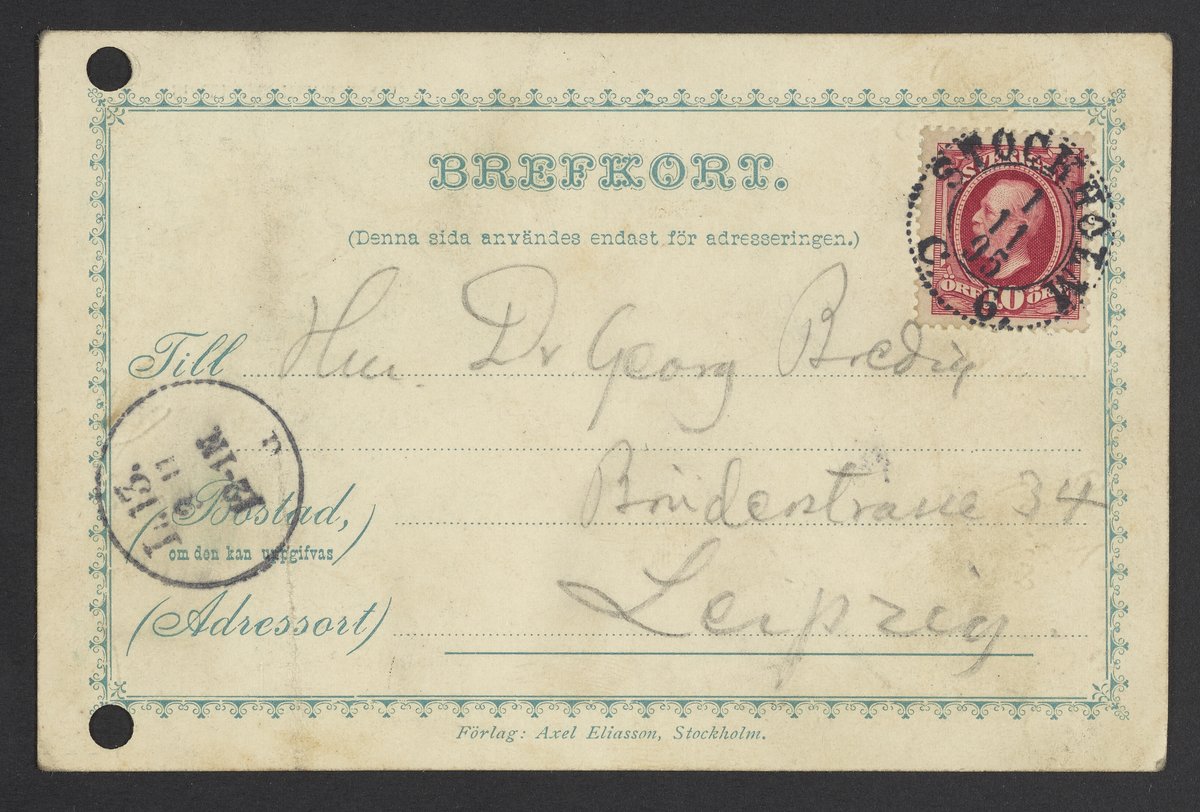 BREFKORT.
(Denna sida användes endast för adresseringen.)
SVERIGE
10
ÖRE ÖRE
STOCKHOLM
1
11
95
C. 6.
Till Herr. Dr Georg Bredig
(Bostad,
om den kan uppgifvas)
Brüderstrasse 34
(Adressort) Leipzig.
12-1N
Förlag: Axel Eliasson, Stockholm.